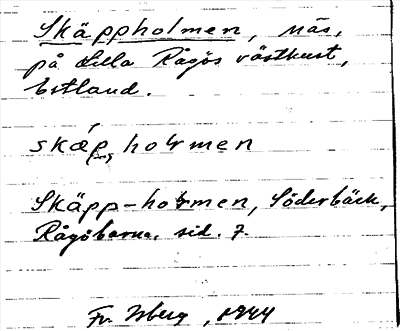 Skäppholmen, näs,
på Lilla Rågös västkust,
Estland.
skæ̀p̦ hoɫmen
Skäpp-hoɫmen, Söderbäck,
Rågöborna. sid. 7.
Fr. Isberg, 1944